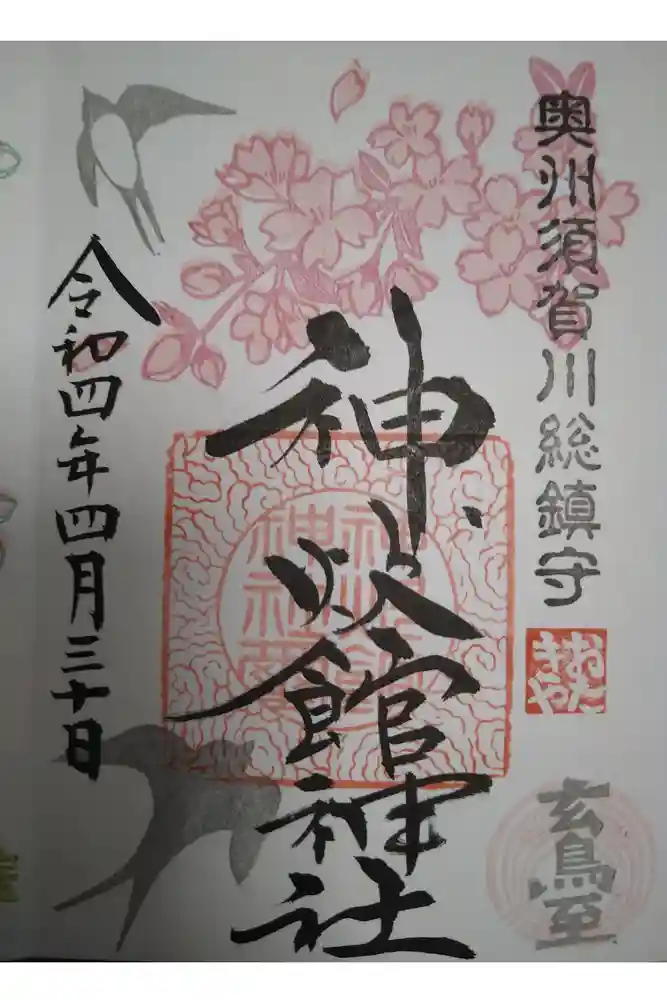 奥州須賀川総鎮守
おた
きや
玄鳥至
神炊館神社
神炊館
神社
令和四年四月三十日